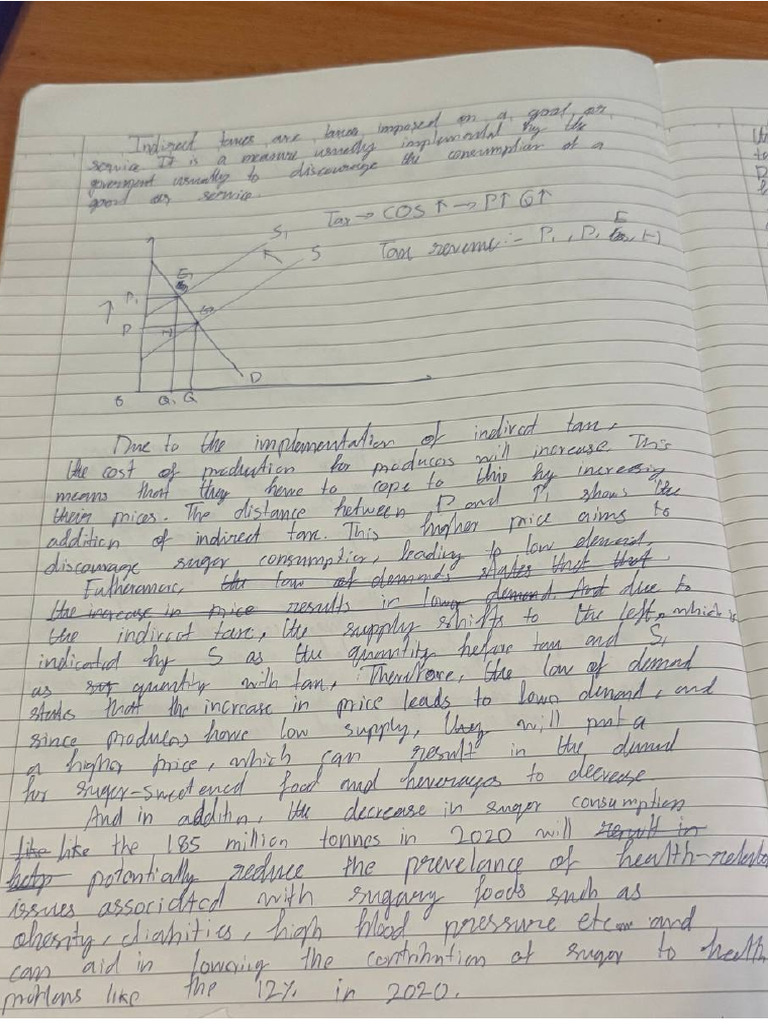 Indirect taxes are taxes imposed on a good or
service. It is a measure usually implemented by the
government usually to discourage the consumption of a
good or service.
Tax → COS ↑ → P↑ Q↑
Tax revenue :- P1, P, E, H
S1
S
E1
P1
P
H
D
0 Q1 Q
Due to the implementation of indirect tax,
the cost of production for producers will increase. This
means that they have to cope to this by increasing
their prices. The distance between P and P1 shows the
addition of indirect tax. This higher price aims to
discourage sugar consumption, leading to low demand.
Futheremore, the law of demands states that that
the increase in price results in lower demand. And due to
the indirect tax, the supply shifts to the left, which is
indicated by S as the quantity before tax and S1
as quantity with tax. Therefore, the law of demand
states that the increase in price leads to lower demand, and
since producers have low supply, they will put a
a higher price, which can result in the demand
for sugar-sweetened food and beverages to decrease
And in addition, the decrease in sugar consumption
like like the 185 million tonnes in 2020 will result in
help potentially reduce the prevelance of health-related
issues associated with sugary foods such as
obesity, diabities, high blood pressure etc and
can aid in lowering the contribution of sugar to health
problems like the 12% in 2020.